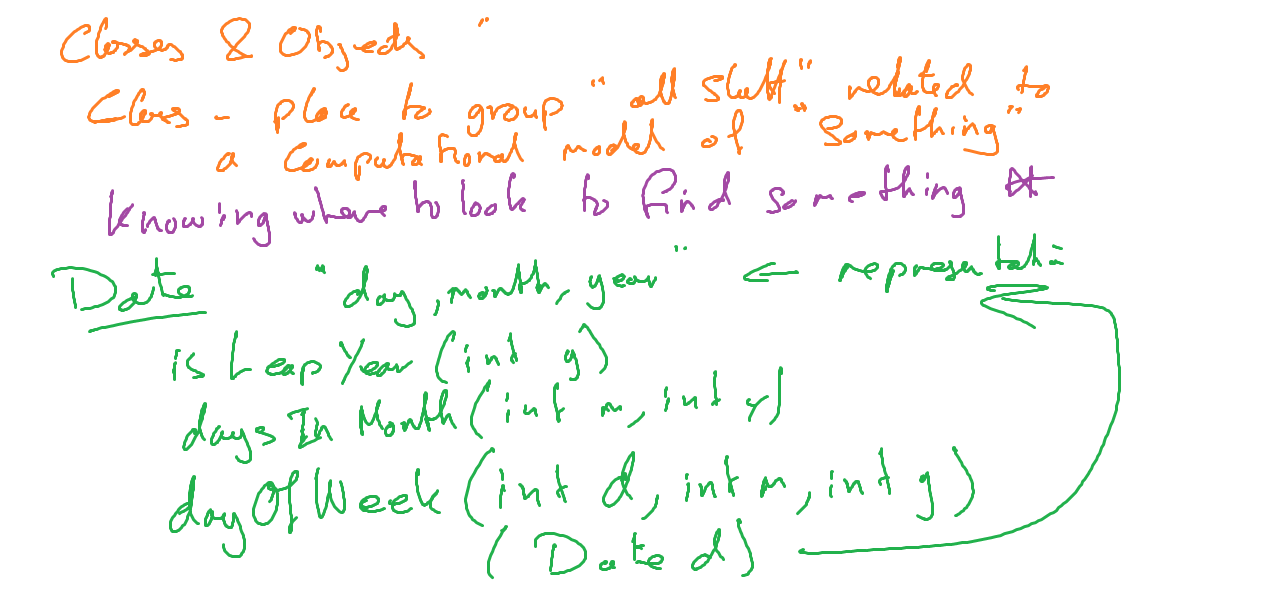 Classes & Objects "
Class - place to group "all stuff" related to
a computational model of "Something"
knowing where to look to find something
Date "day, month, year" ← representation
isLeapYear (int y)
daysInMonth (int m, int y)
dayOfWeek (int d, int m, int y)
(Date d)